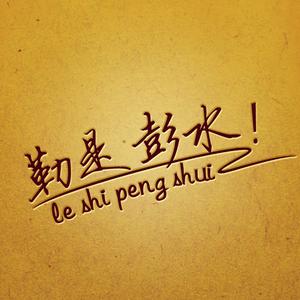 勒是彭水!
le shi peng shui